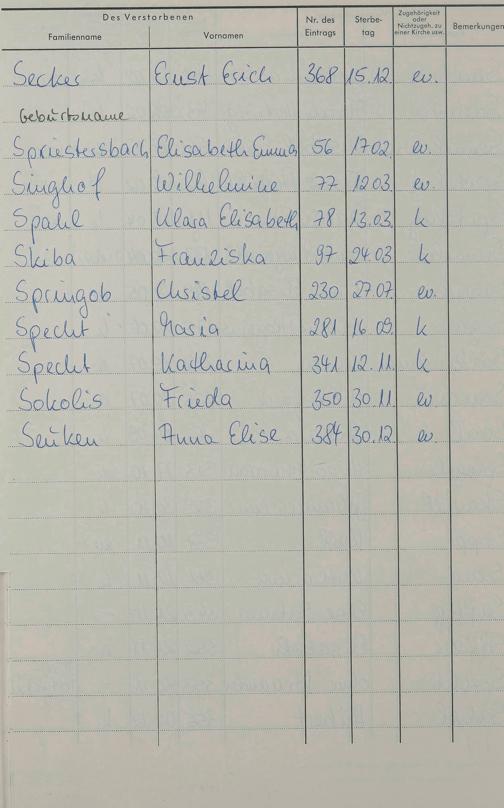 Des Verstorbenen
Familienname Vornamen Nr. des Eintrags Sterbe-tag Zugehörigkeit oder Nichtzugeh. zu einer Kirche usw. Bemerkungen
Secker Ernst Erich 368 15.12. ev.
Geburtsname
Spriestersbach Elisabeth Emma 56 17.02. ev.
Singhof Wilhelmine 77 12.03. ev.
Spahl Klara Elisabeth 78 13.03. k
Skiba Franziska 97 24.03. k
Springob Christel 230 27.07. ev.
Specht Maria 281 16.09. k
Specht Katharina 341 12.11. k
Sokolis Frieda 350 30.11. ev.
Senken Anna Elise 384 30.12. ev.